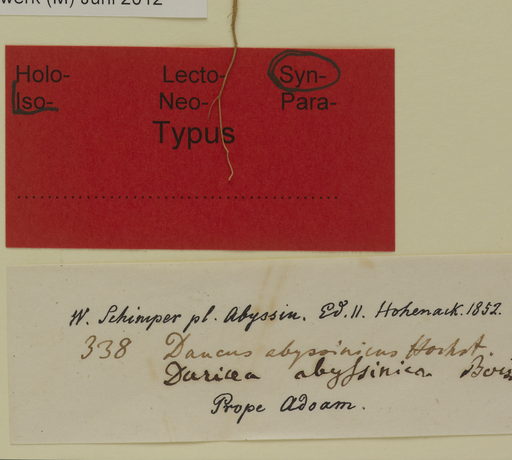 werk (M) Juni 2012
Holo- Lecto- Syn-
Iso- Neo- Para-
Typus
W. Schimper pl. Abyssin. Ed. II. Hohenack. 1852.
338 Daucus abyssinicus Hochst.
abyssinica Bois
Prope Adoam.